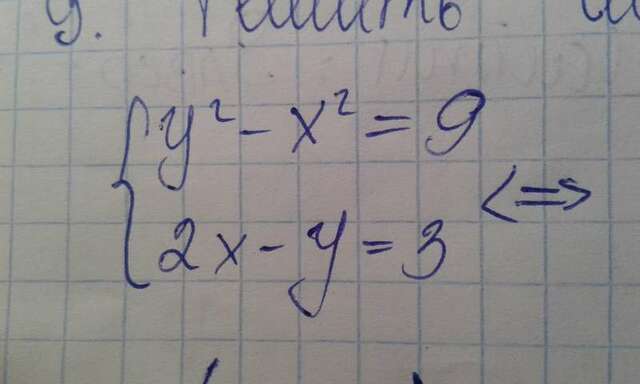 9. Решить
{ y² - x² = 9
2x - y = 3 <=>